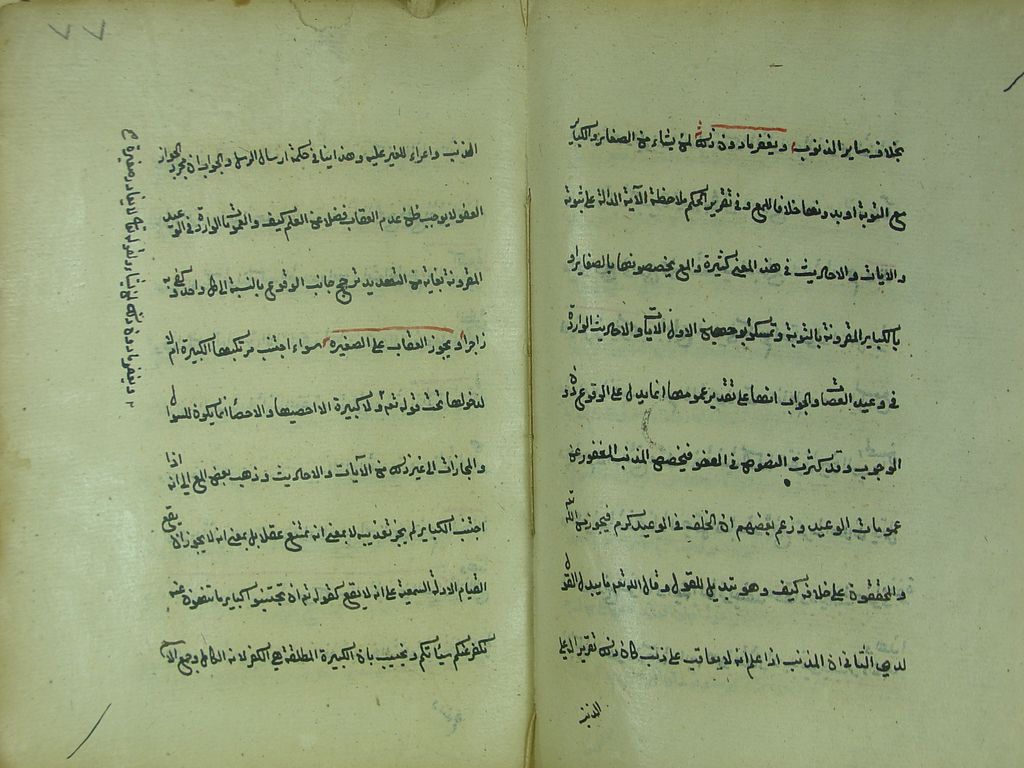 بخلاف ساير الذنوب ويغفر ما دون ذلك لمن يشاء من الصغاير والكباير
مع التوبة او بدونها خلافا للمع وفى تقرير الحكم ملاحظة الآية الدالة على ثبوته
والايات والاحاديث فى هذا المعنى كثيرة والمع يخصصونها بالصغاير او
بالكباير المقرونة بالتوبة وتمسكوا بوجهين الاول الآيات والاحاديث الواردة
فى وعيد العصاة والجواب انها على تقدير عمومها انما يدل على الوقوع دون
الوجوب وقد كثرت النصوص فى العفو فيخصص المذنب المغفور عن
عمومات الوعيد وزعم بعضهم ان الخلف فى الوعيد كرم فيجوز من الله تع
والمحققون على خلافه كيف وهو تبديل للقول وقال الله تعم ما يبدل القول
لدى الثانى ان المذنب اذا علم انه لا يعاقب على ذنبه كان ذلك تقريرا له على
الذنب
٧٧
الذنب واغراء للغير عليه وهذا ينافى حكمة ارسال الرسل والجواب ان مجرد الجواز
العفو لا يوجب ظن عدم العقاب فضلا عن العلم كيف والعمومات الواردة فى الوعيد
المقرونة بغاية من التهديد ترجح جانب الوقوع بالنسبة الى كل واحد وكفى به
زاجرا ويجوز العقاب على الصغيرة سواء اجتنب مرتكبها الكبيرة ام لا
لدخولها تحت قوله تعم ولا كبيرة الا احصيها والاحصاء انما يكون للسؤال
والمجازات الى غير ذلك من الآيات والاحاديث وذهب بعض المع الى انه اذا
اجتنب الكباير لم يجز تعذيبه لا بمعنى انه يمتنع عقلا بل بمعنى انه لا يجوز ان يقع
لقيام الادلة السمعية على انه لا يقع كقوله تع ان تجتنبوا كباير ما تنهون عنه
نكفر عنكم سيأتكم واجيب بان الكبيرة المطلقة هى الكفر لانه الكامل وجمع الاسم
ويغفر ما دون ذلك لمن يشاء ولقوله تع لا يغادر صغيرة